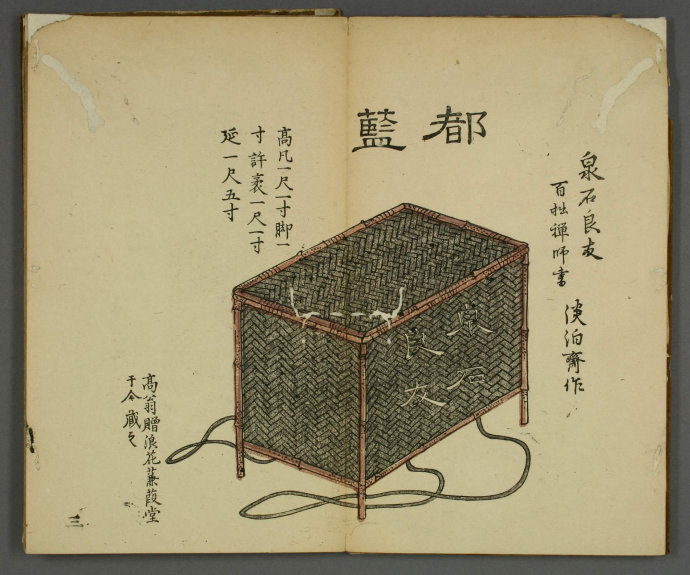 都籃
泉石良友
百拙禅師書
淡泊齋作
泉石
良友
高凡一尺一寸脚一
寸許袤一尺一寸
延一尺五寸
高翁贈浪花蒹葭堂
于今蔵之
三